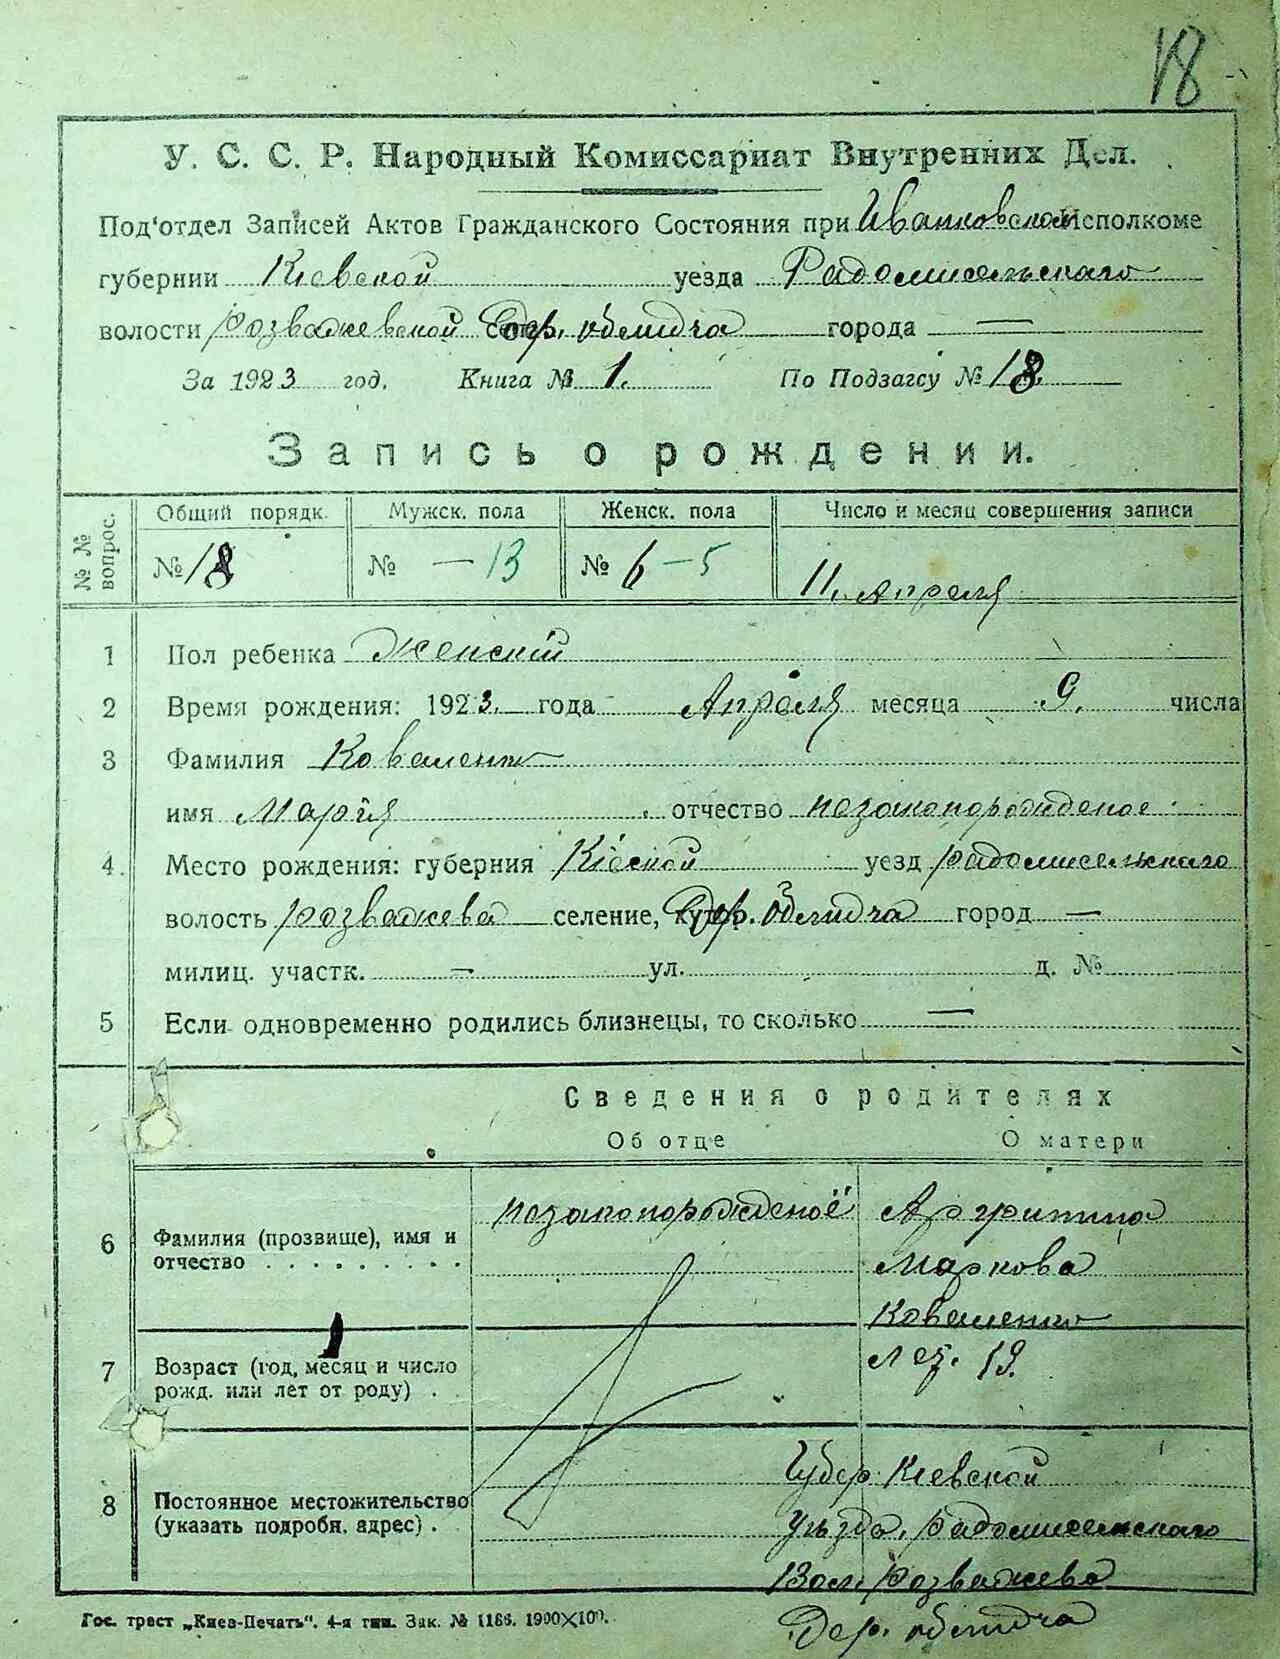 18
У. С. С. Р. Народный Комиссариат Внутренних Дел.
Под'отдел Записей Актов Гражданского Состояния при Иванковском Исполкоме
губернии Кіевской уезда Радомисельского
волости розважевской дер. обелидча города —
За 1923 год. Книга № 1. По Подзагсу № 18.
Запись о рождении.
№ № вопрос. Общий порядк. Мужск. пола Женск. пола Число и месяц совершения записи
№ 18 № — 13 № 6 — 5 11. Апреля
1 Пол ребенка женскій
2 Время рождения: 1923. года Апреля месяца 9. числа
3 Фамилия Коваленко
имя Марія отчество незаконорожденое
4. Место рождения: губерния Кіеской уезд радомисельскаго
волость розважева селение, дер. обелидча город —
милиц. участк. — ул. д. №
5 Если одновременно родились близнецы, то сколько —
Сведения о родителях
Об отце О матери
6 Фамилия (прозвище), имя и отчество незаконорожденой
Маркова
Коваленко
7 Возраст (год, месяц и число рожд. или лет от роду) лет. 19.
8 Постоянное местожительство (указать подробн. адрес) Губер. Кіевской
Уъзда. Радомисельскаго
Вол. Розважева
Дер. обелидча
Гос. трест „Киев-Печать". 4-я тип. Зак. № 1166. 1900×100.